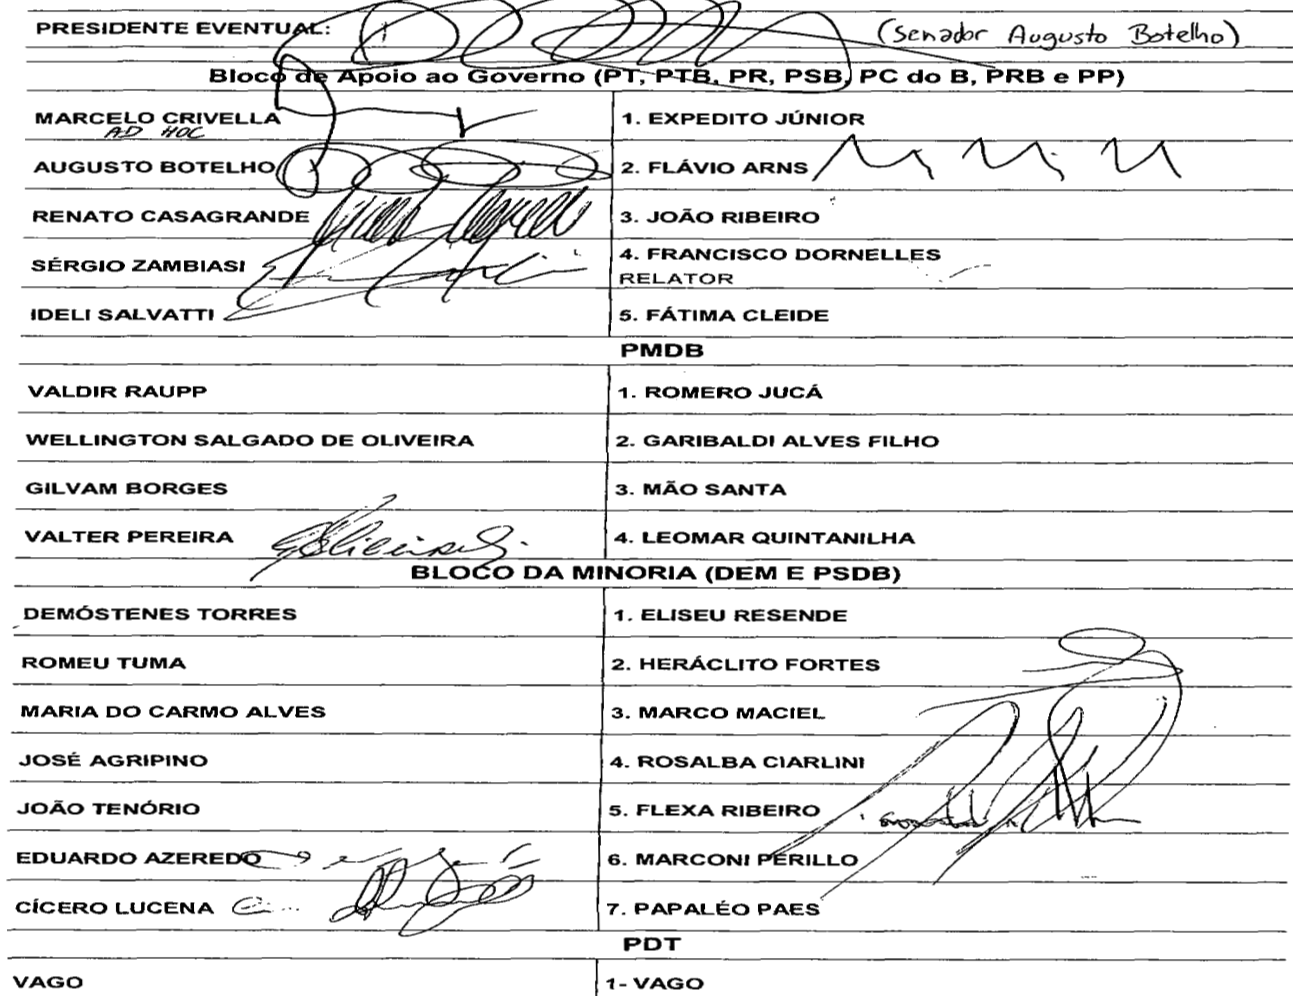 PRESIDENTE EVENTUAL: (Senador Augusto Botelho)
Bloco de Apoio ao Governo (PT, PTB, PR, PSB, PC do B, PRB e PP)
MARCELO CRIVELLA 1. EXPEDITO JÚNIOR
AD HOC
AUGUSTO BOTELHO 2. FLÁVIO ARNS
RENATO CASAGRANDE 3. JOÃO RIBEIRO
SÉRGIO ZAMBIASI 4. FRANCISCO DORNELLES
RELATOR
IDELI SALVATTI 5. FÁTIMA CLEIDE
PMDB
VALDIR RAUPP 1. ROMERO JUCÁ
WELLINGTON SALGADO DE OLIVEIRA 2. GARIBALDI ALVES FILHO
GILVAM BORGES 3. MÃO SANTA
VALTER PEREIRA 4. LEOMAR QUINTANILHA
BLOCO DA MINORIA (DEM E PSDB)
DEMÓSTENES TORRES 1. ELISEU RESENDE
ROMEU TUMA 2. HERÁCLITO FORTES
MARIA DO CARMO ALVES 3. MARCO MACIEL
JOSÉ AGRIPINO 4. ROSALBA CIARLINI
JOÃO TENÓRIO 5. FLEXA RIBEIRO
EDUARDO AZEREDO 6. MARCONI PERILLO
CÍCERO LUCENA 7. PAPALÉO PAES
PDT
VAGO 1- VAGO